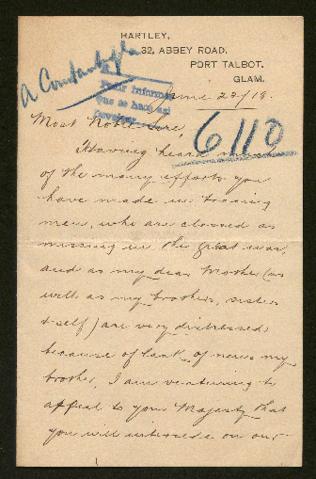 HARTLEY,
32, ABBEY ROAD,
PORT TALBOT.
GLAM.
A Constantinopla
June 29/18.
Most Noble Sire,
6110
Having heard much
of the many efforts you
have made in tracing
men, who are classed as
missing in the great war,
and as my dear Mother (as
well as my brothers, sister
& self) are very distressed
because of lack of news my
brother, I am venturing to
appeal to your Majesty that
you will intercede on our